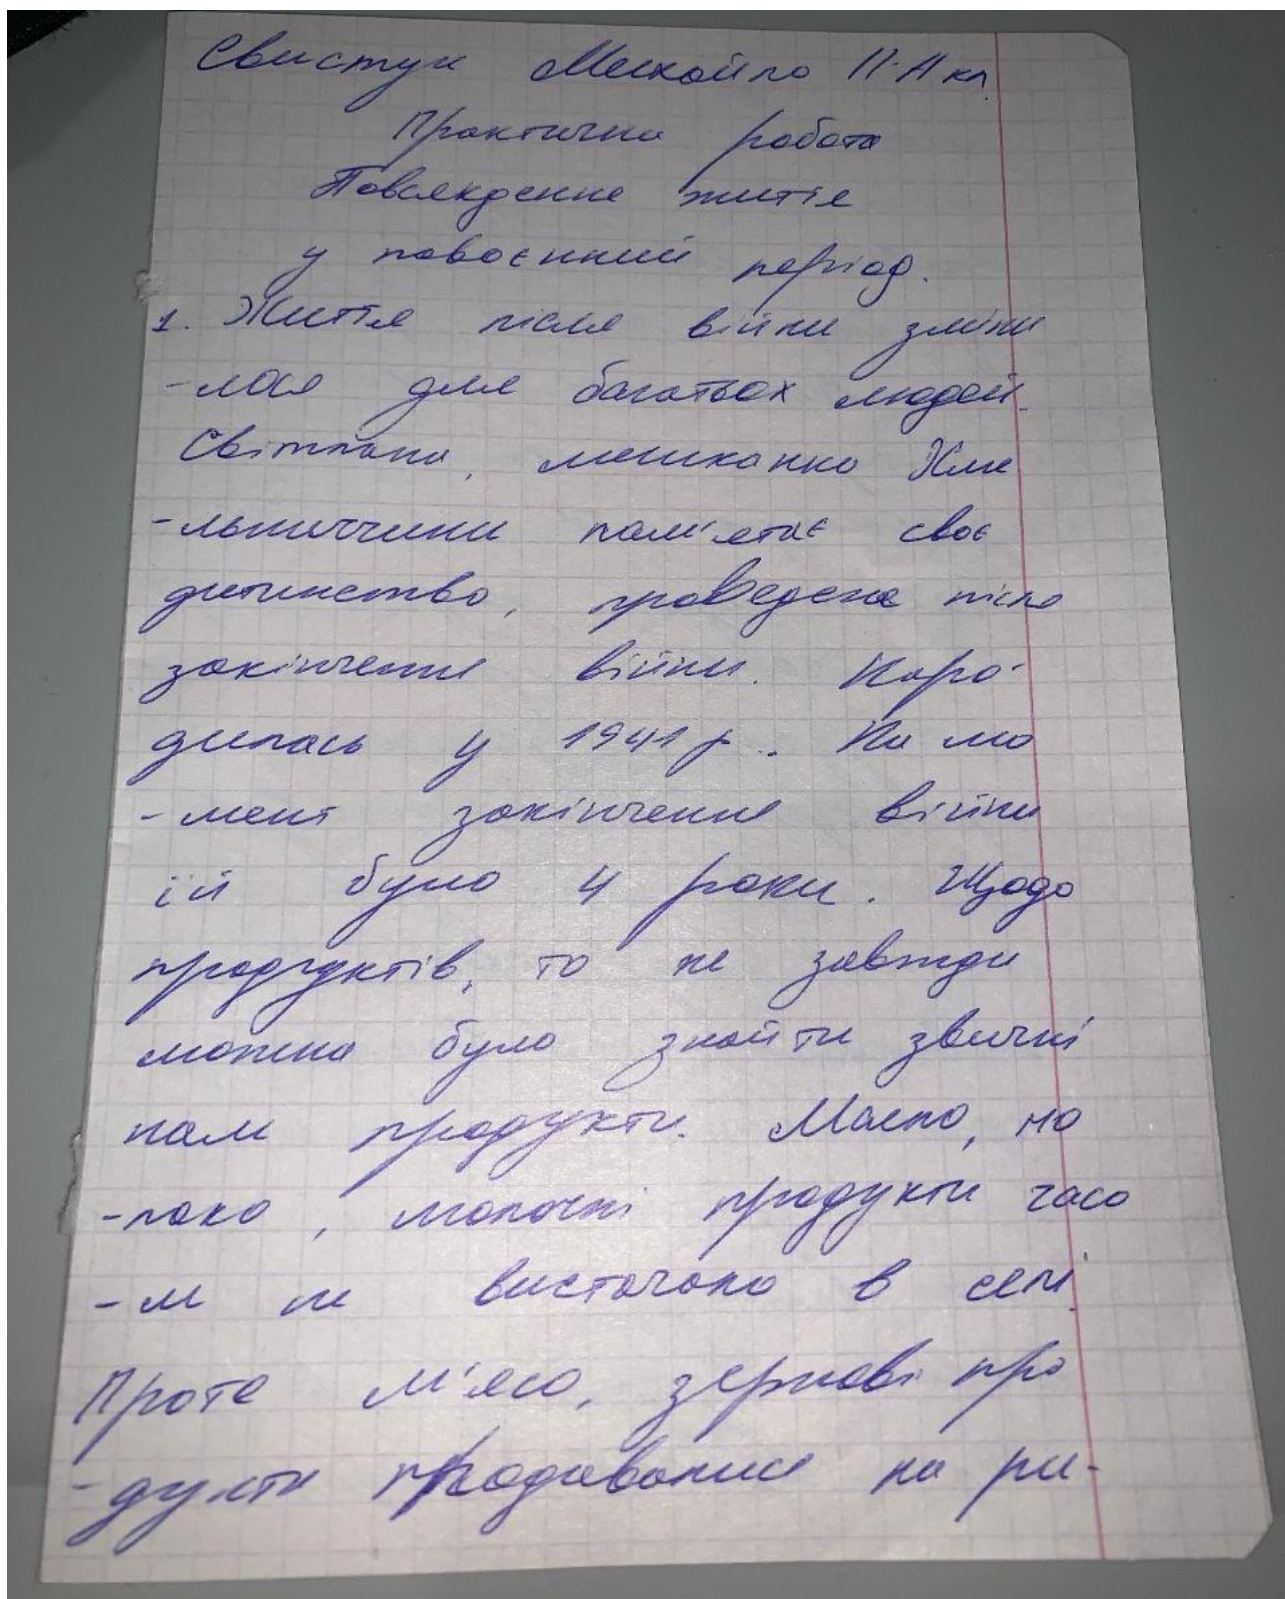 Свистун Михайло 11-А кл.
Практична робота
Повсякденне життя
у повоєнний період.
1. Життя після війни зміни
-лося для багатьох людей.
Світлана, мешканка Хме
-льниччини пам'ятає своє
дитинство, проведене після
закінчення війни. Наро-
дилась у 1941 р. На мо
-мент закінчення війни
їй було 4 роки. Щодо
продуктів, то не завжди
можна було знайти звичні
нам продукти. Масло, мо
-локо, молочні продукти часо
-м не вистачало в селі.
Проте м'ясо, зернові про
-дукти продавались на ри-